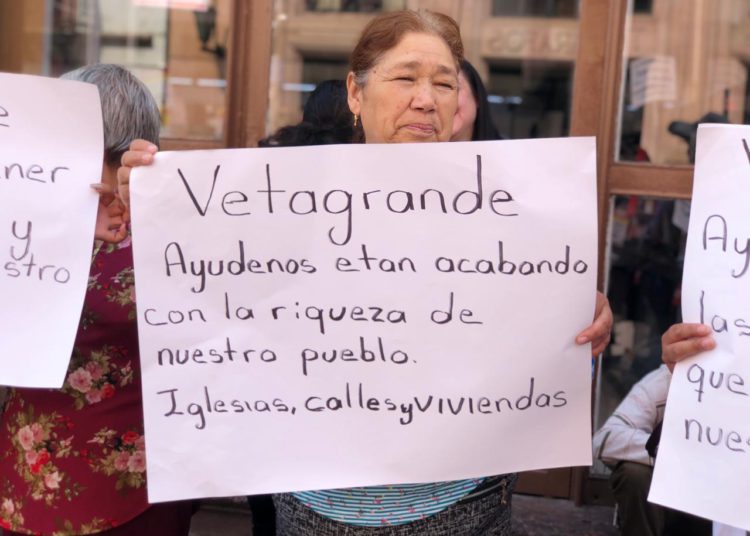 Vetagrande
Ayudenos etan acabando
con la riqueza de
nuestro pueblo.
Iglesias, calles y viviendas
e
ner
y
stro
Ay
las
que
nues